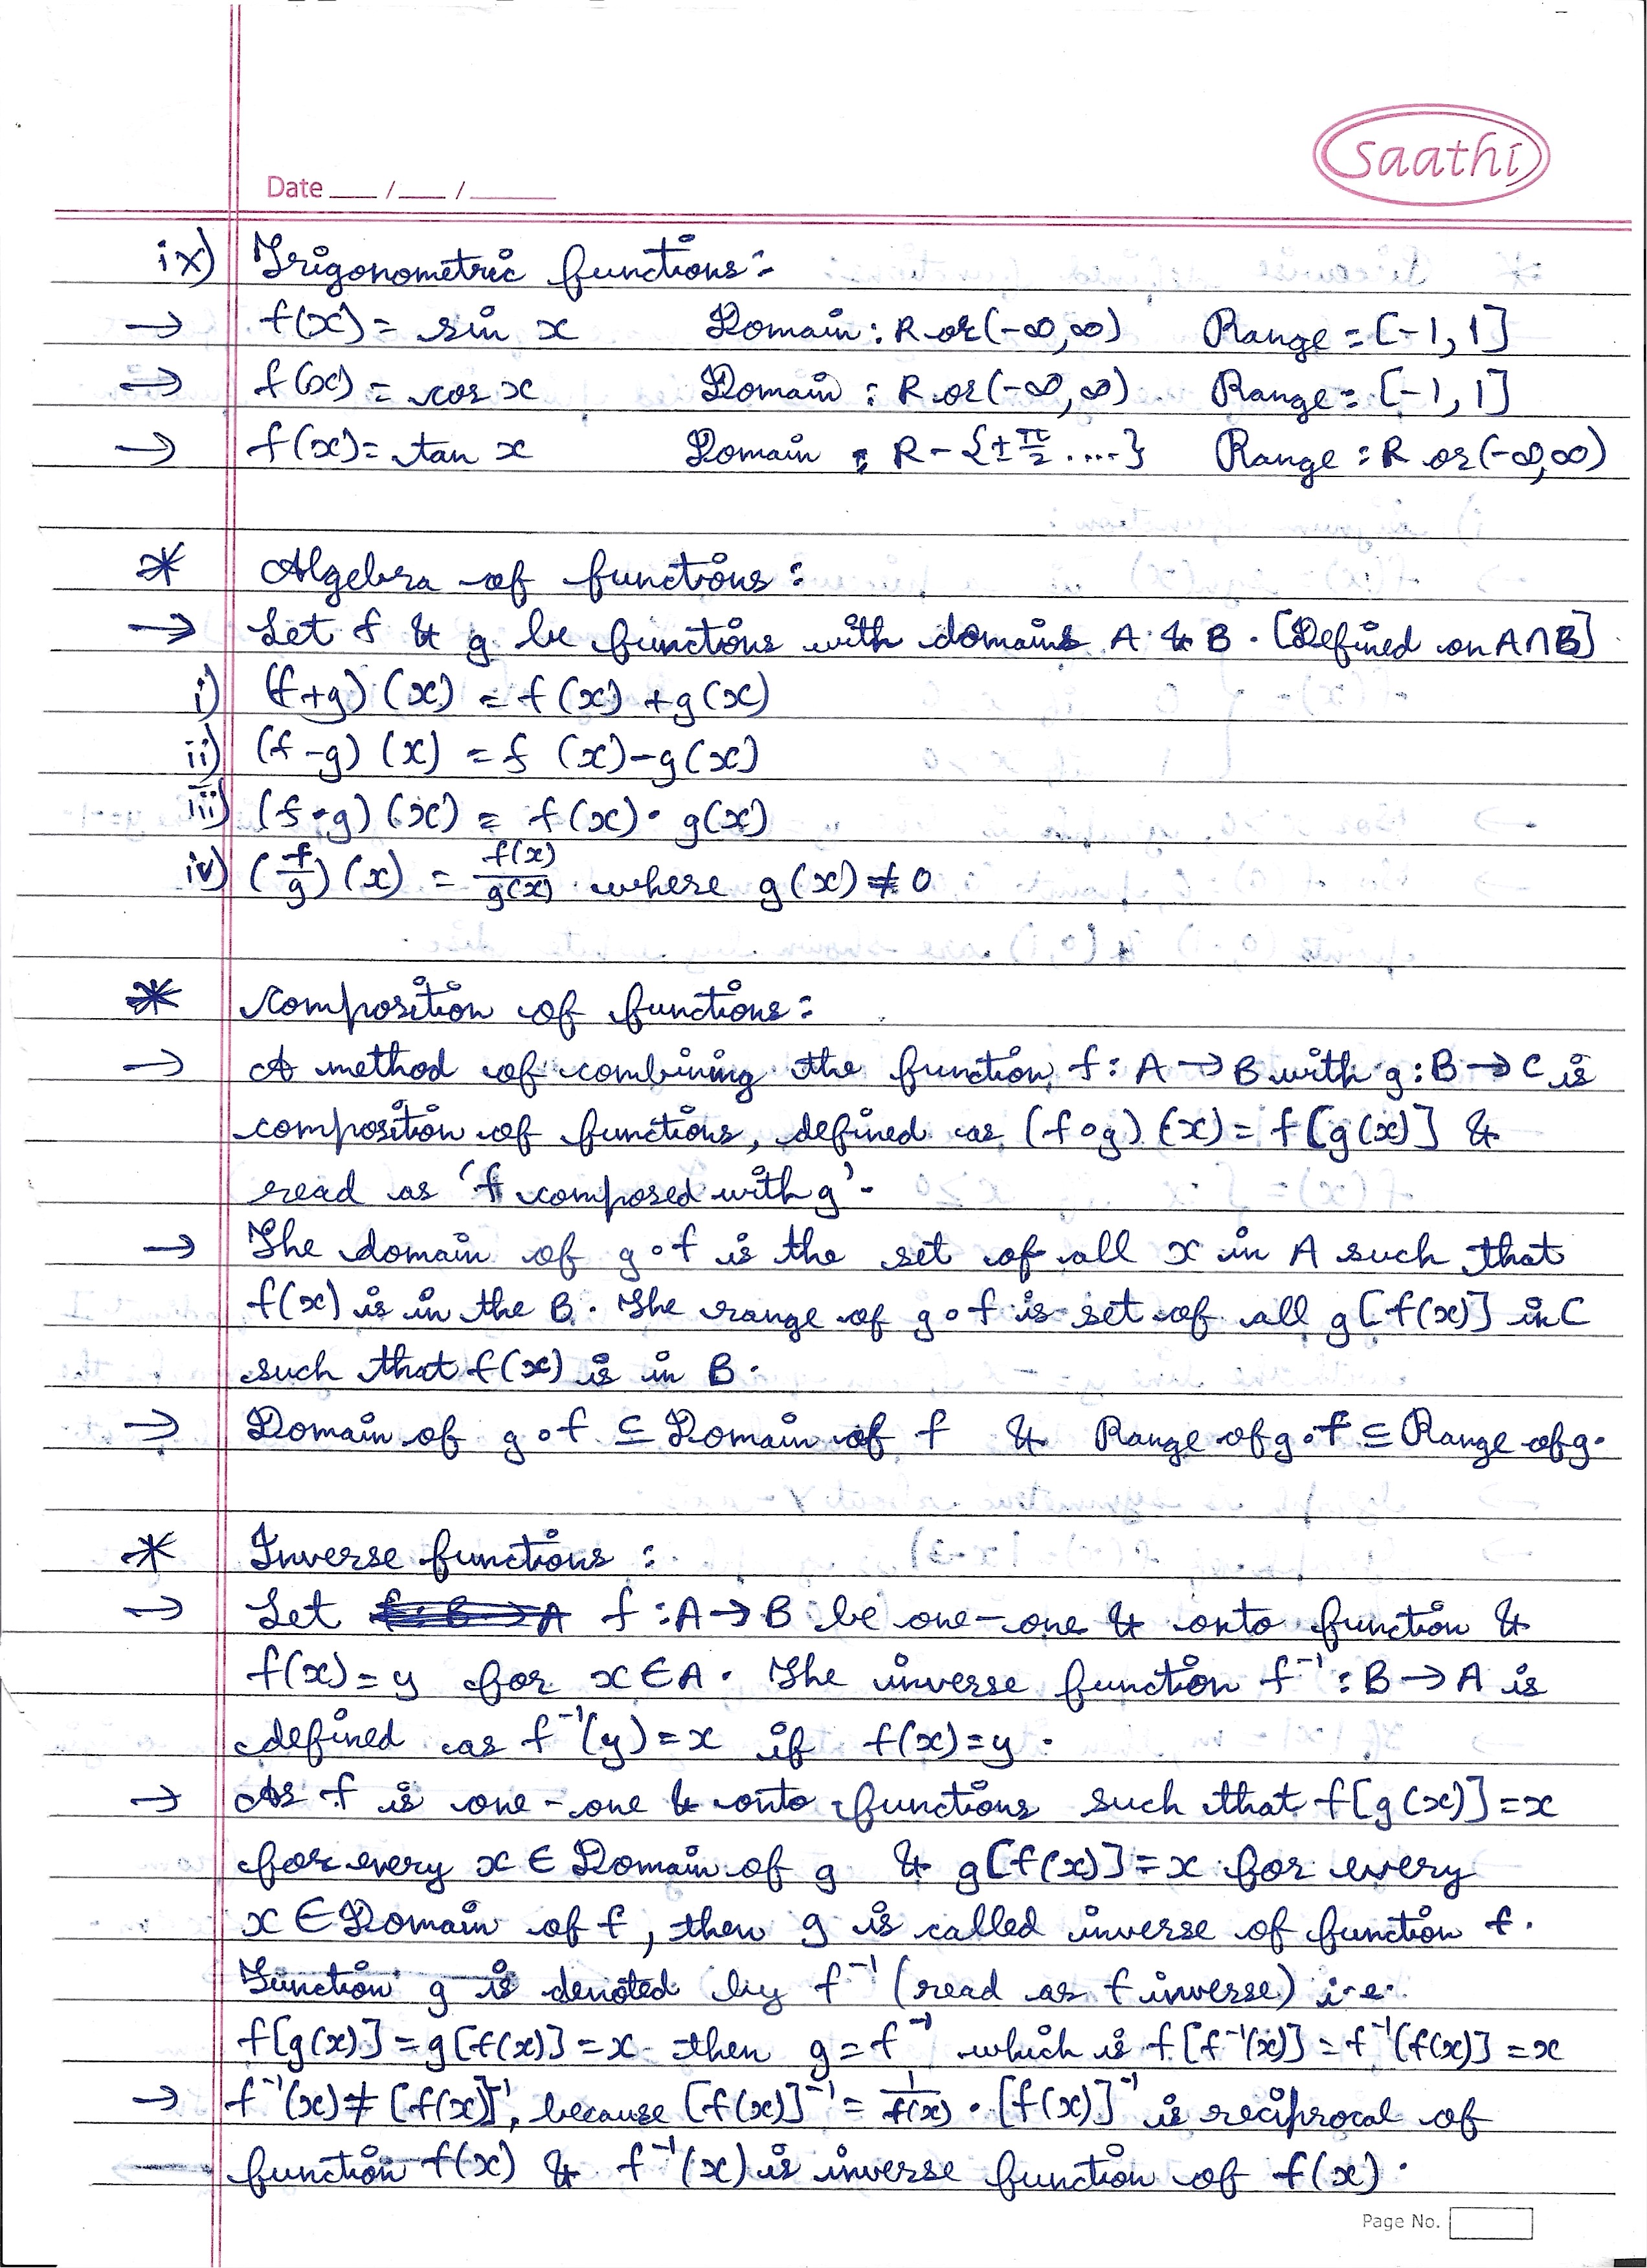 saathi
Date ___ / ___ / ______
ix) Trigonometric functions:
→ f(x) = sin x Domain: R or (-∞,∞) Range = [-1, 1]
→ f(x) = cos x Domain : R or (-∞,∞) Range = [-1, 1]
→ f(x) = tan x Domain : R - {± π/2 ....} Range : R or (-∞,∞)
* Algebra of functions :
→ Let f & g be functions with domains A & B. [Defined on A∩B]
i) (f+g) (x) = f(x) + g(x)
ii) (f-g) (x) = f (x) - g(x)
iii) (f•g) (x) = f(x) • g(x)
iv) (f/g) (x) = f(x)/g(x) where g(x) ≠ 0
* Composition of functions :
→ A method of combining the function f : A → B with g : B → C is
composition of functions, defined as (f∘g) (x) = f[g(x)] &
read as 'f composed with g'.
→ The domain of g∘f is the set of all x in A such that
f(x) is in the B. The range of g∘f is set of all g[f(x)] in C
such that f(x) is in B.
→ Domain of g∘f ⊆ Domain of f & Range of g∘f ⊆ Range of g.
* Inverse functions :
→ Let f : A → B be one-one & onto function &
f(x) = y for x ∈ A. The inverse function f⁻¹ : B → A is
defined as f⁻¹(y) = x if f(x) = y.
→ As f is one-one & onto functions such that f[g(x)] = x
for every x ∈ Domain of g & g[f(x)] = x for every
x ∈ Domain of f, then g is called inverse of function f.
Function g is denoted by f⁻¹ (read as f inverse) i.e.
f[g(x)] = g[f(x)] = x then g = f⁻¹ which is f[f⁻¹(x)] = f⁻¹[f(x)] = x
→ f⁻¹(x) ≠ [f(x)]⁻¹, because [f(x)]⁻¹ = 1/f(x) • [f(x)]⁻¹ is reciprocal of
function f(x) & f⁻¹(x) is inverse function of f(x).
Page No.